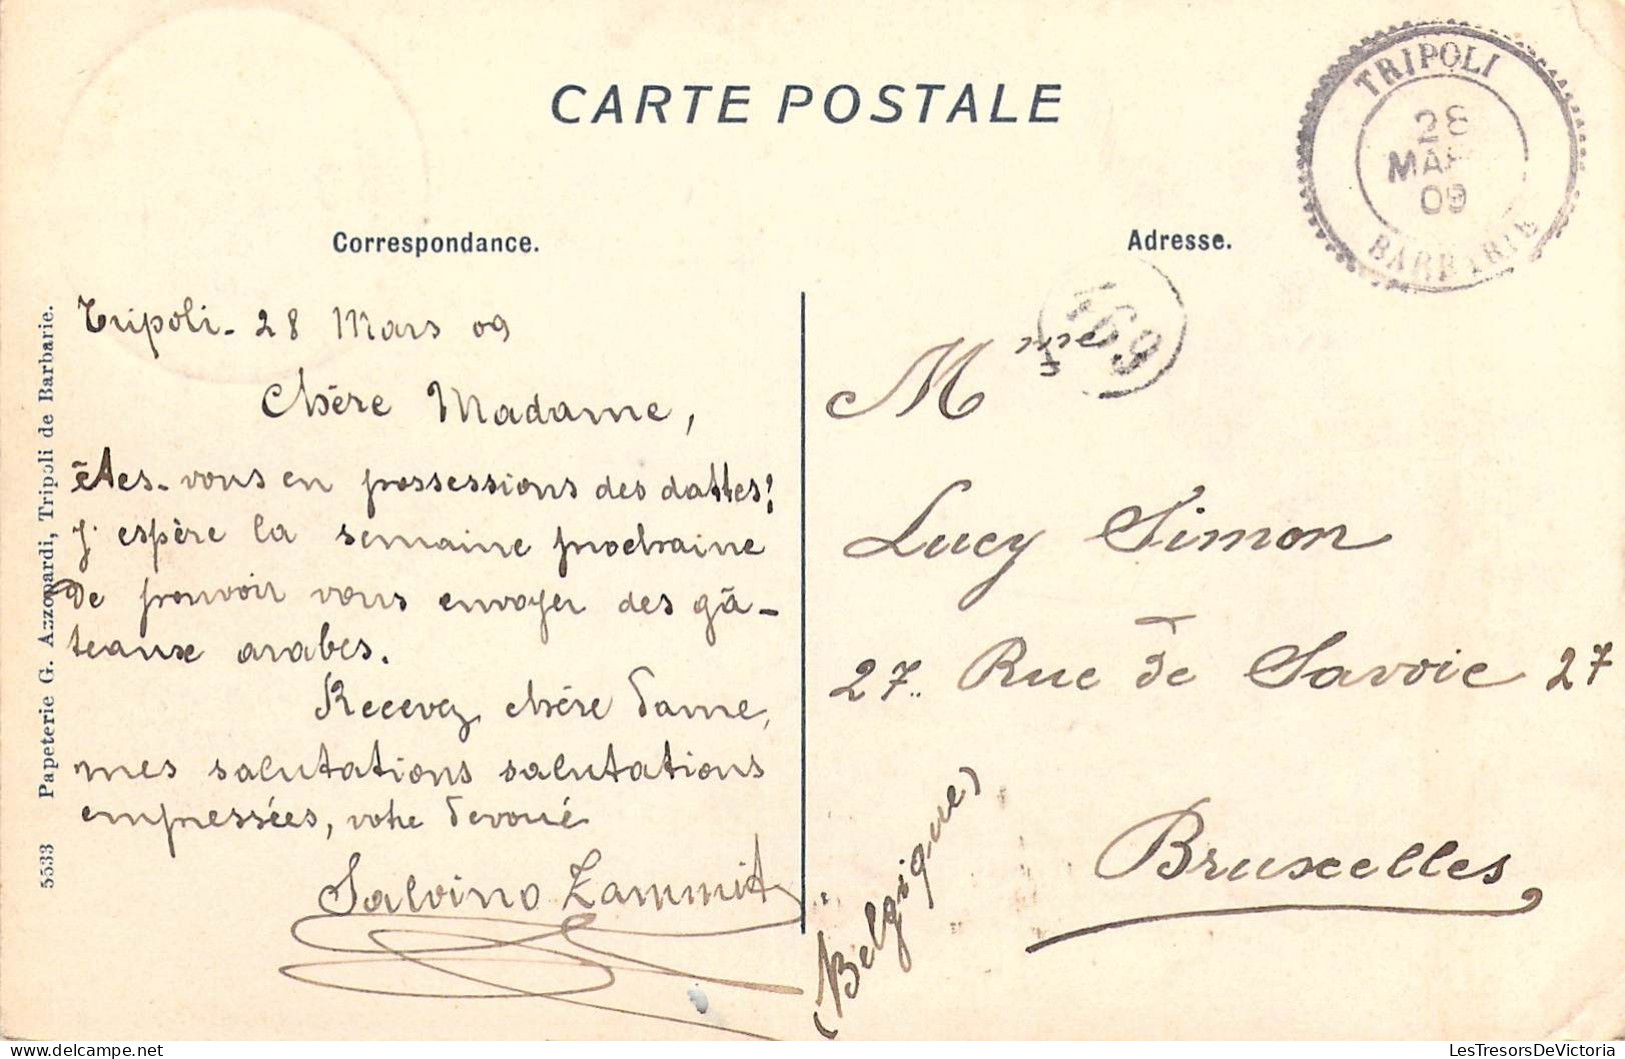 CARTE POSTALE
TRIPOLI
28
MARS
09
BARBARIE
Correspondance.
Adresse.
469
Tripoli - 28 Mars 09
Chère Madame,
êtes-vous en possessions des dattes?
j'espère la semaine prochaine
de pouvoir vous envoyer des gâ-
teaux arabes.
Recevez chère Dame,
mes salutations salutations
empressées, votre devoué
Salvino Zammit
Mme
Lucy Simon
27.. Rue de Savoie 27
Bruxelles
(Belgique)
5533 Papeterie G. Azzopardi, Tripoli de Barbarie.
LesTresorsDeVictoria